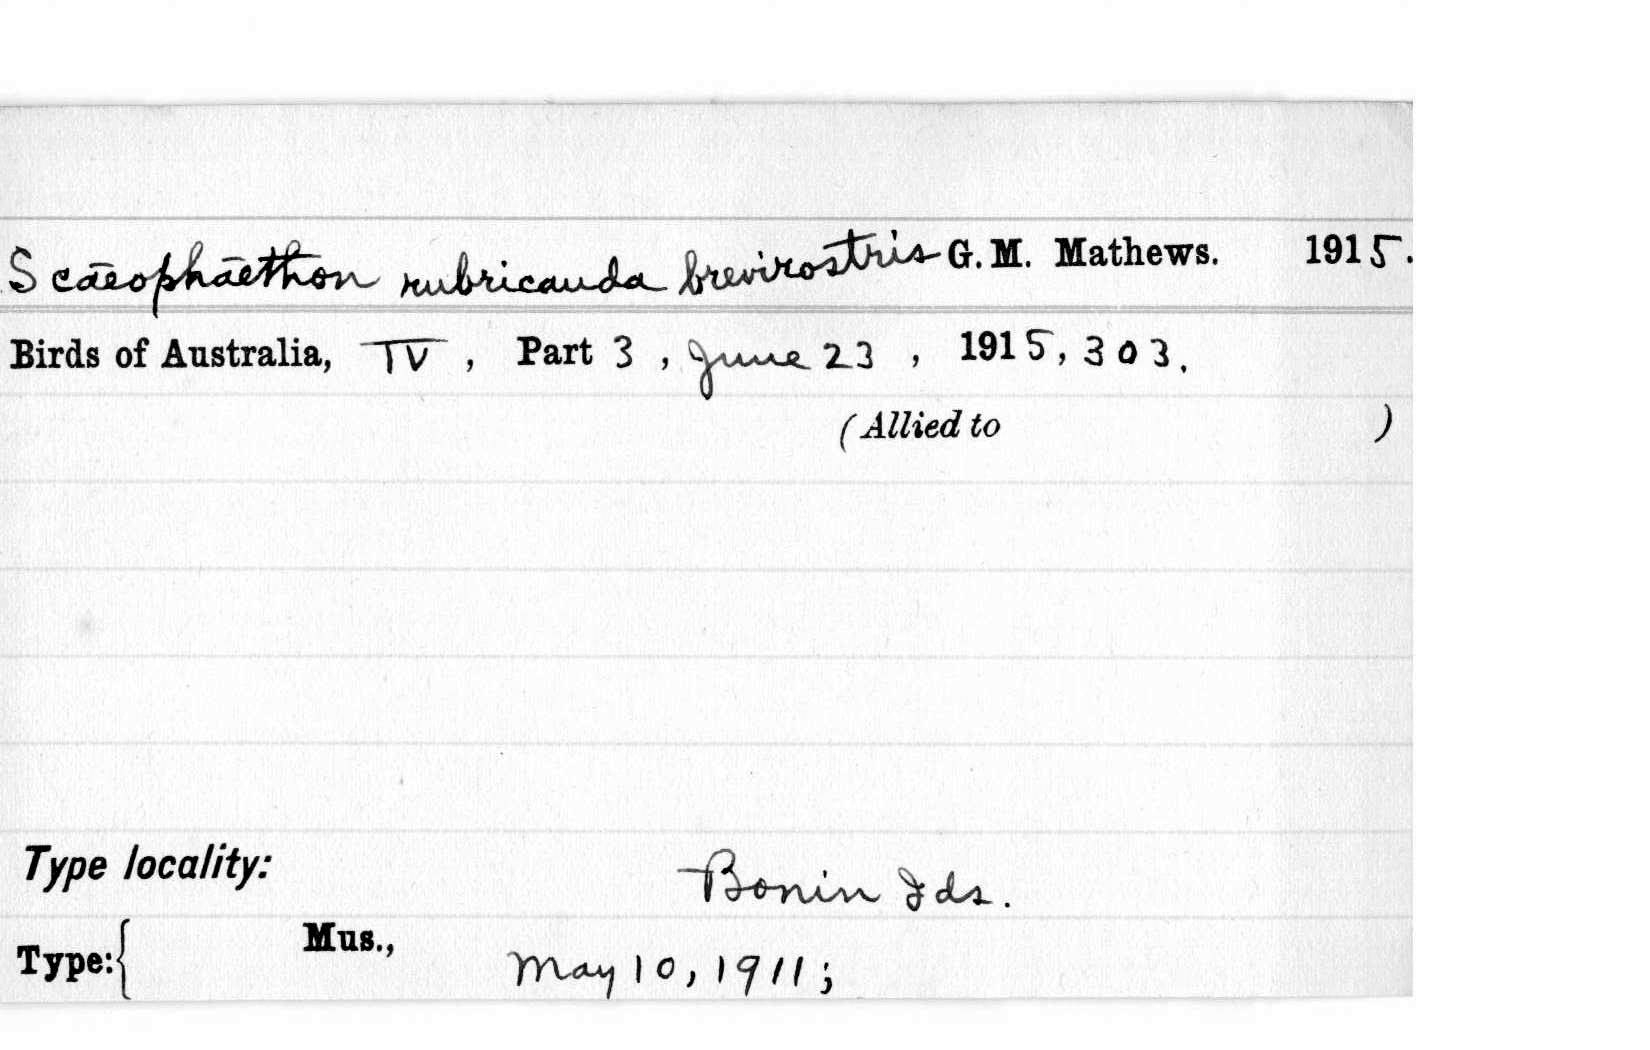 Scaeophaethon rubricauda brevirostris G. M. Mathews. 1915.
Birds of Australia, IV, Part 3, June 23, 1915, 303.
(Allied to )
Type locality: Bonin Ids.
Type: { Mus., May 10, 1911;